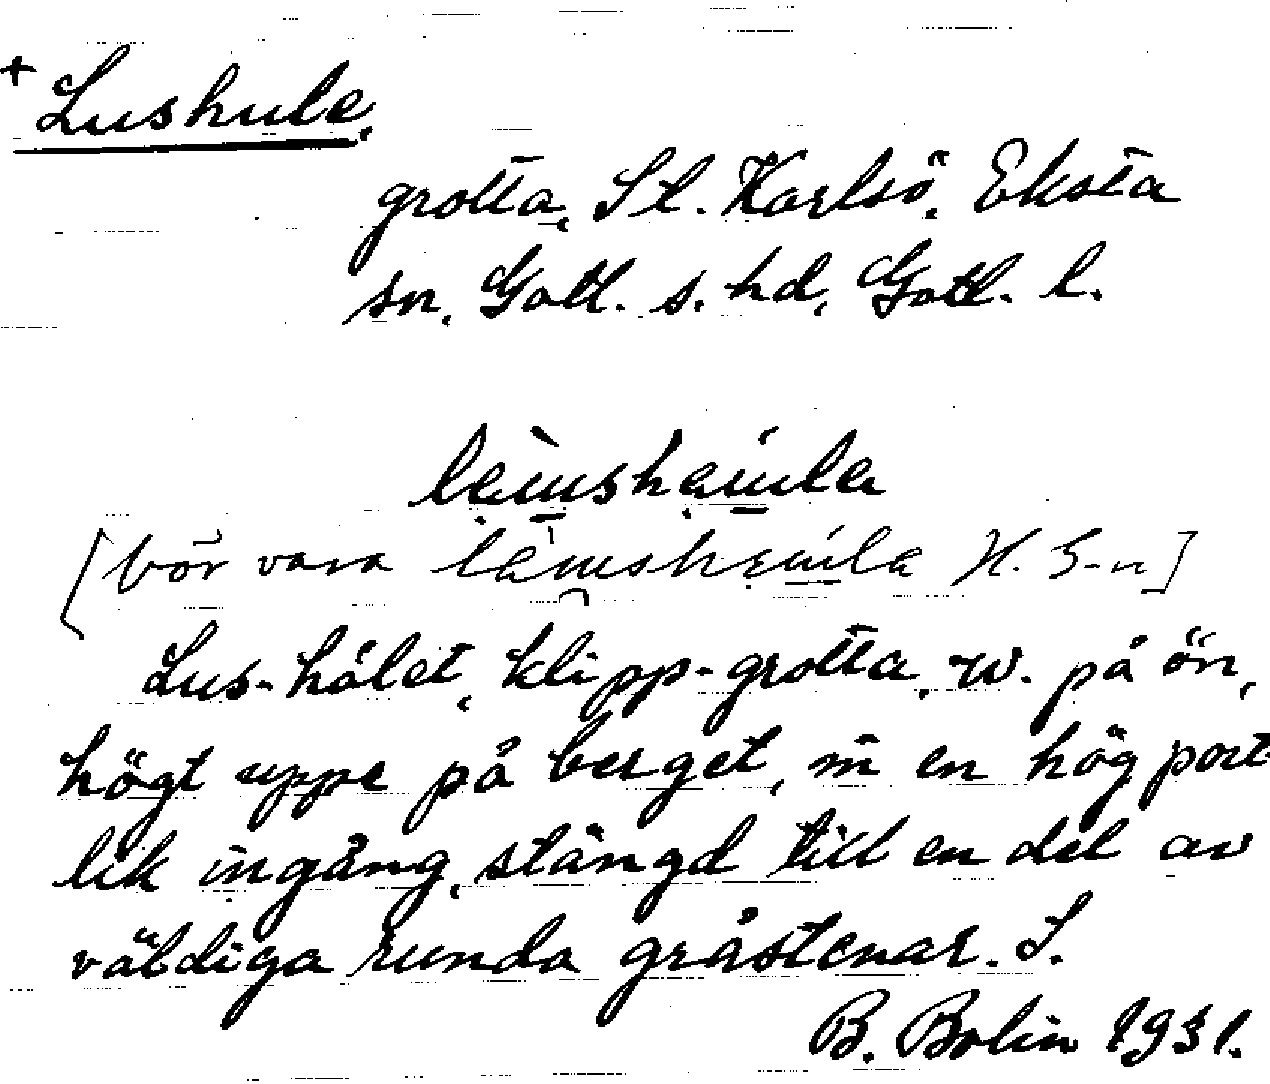 + Lushule,
grotta, St. Karlsö, Eksta
sn, Gotl. s. hd, Gotl. l.
[bör vara H. G-n]
Lus-hålet, klipp-grotta, w. på ön,
högt uppe på berget, m en hög port-
lik ingång, stängd till en del av
väldiga runda gråstenar. S.
B. Bolin 1931.